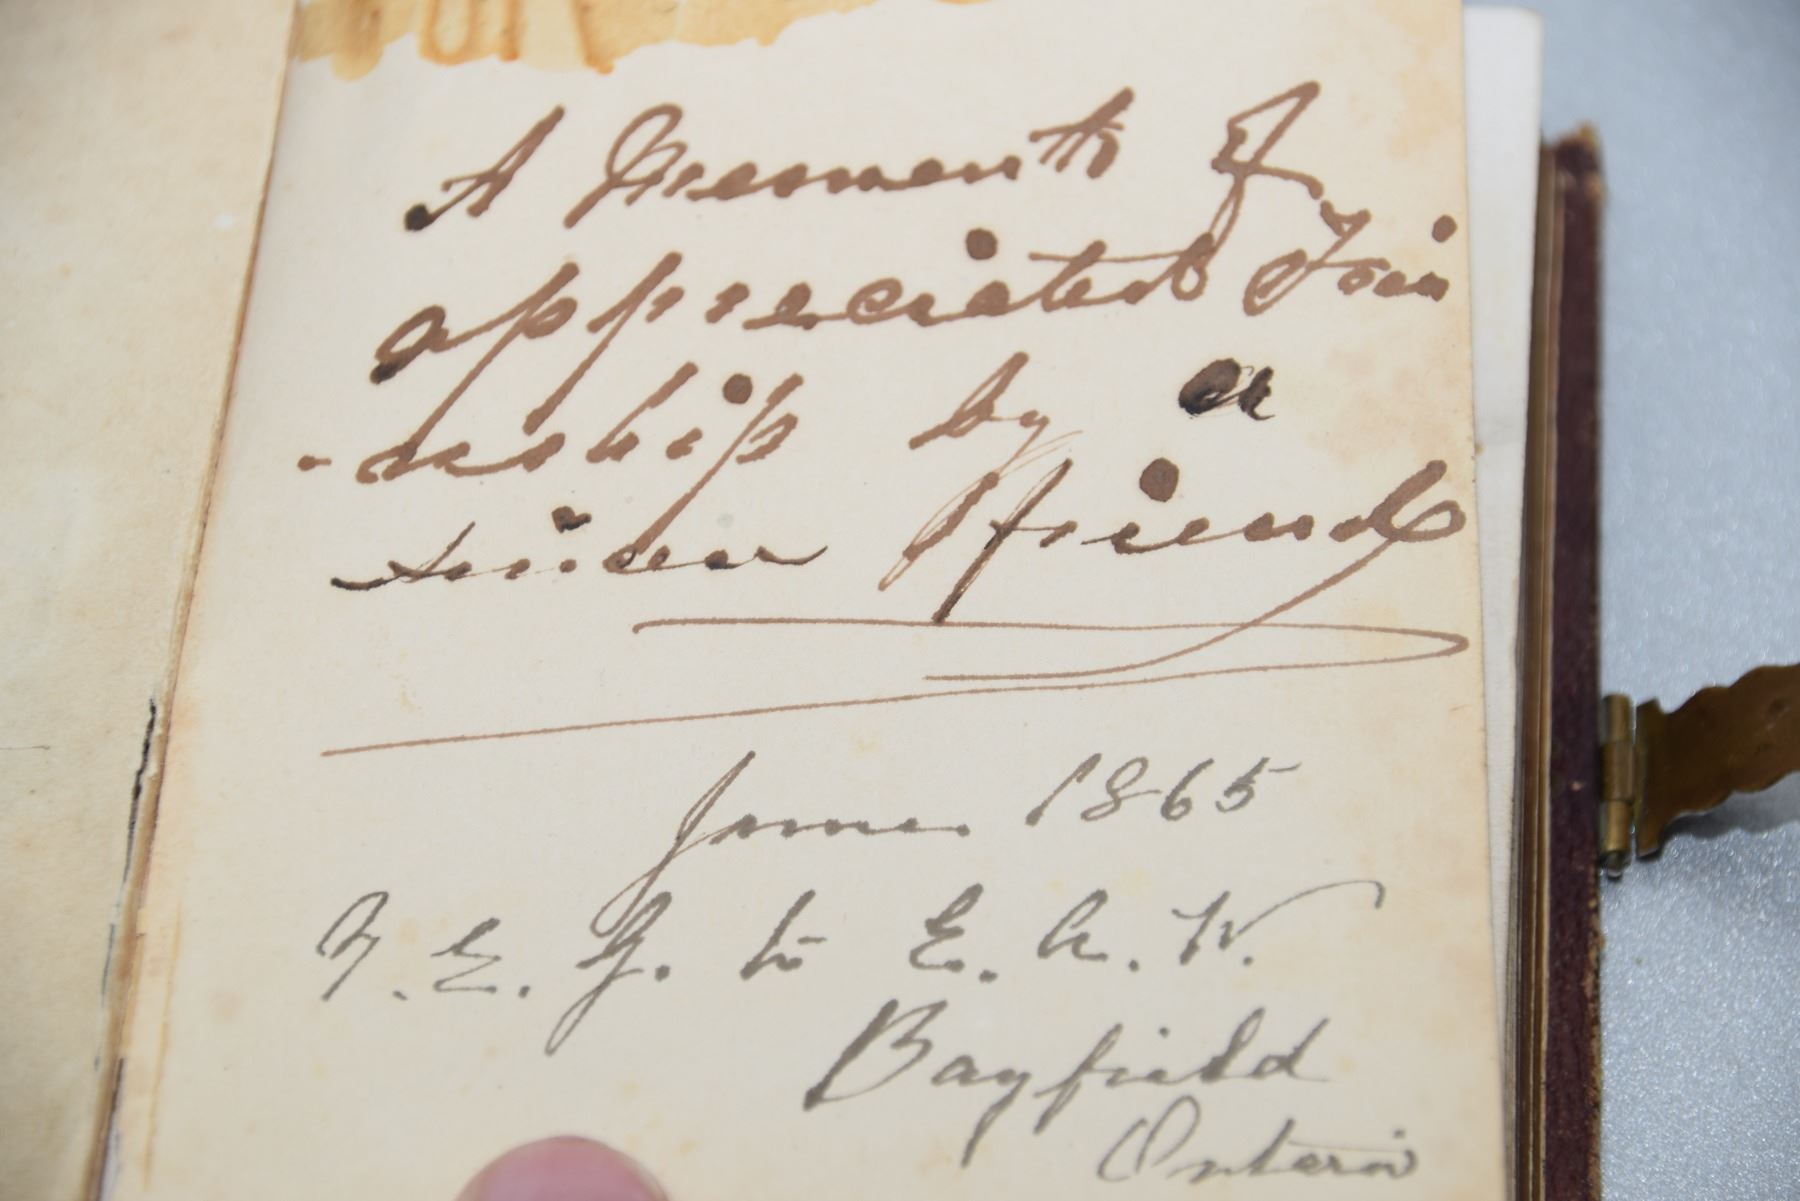 A Memento of
appreciated Frien
-nship by a
sincer friend
June 1865
F. E. G. to E. A. W.
Bayfield
Ontario